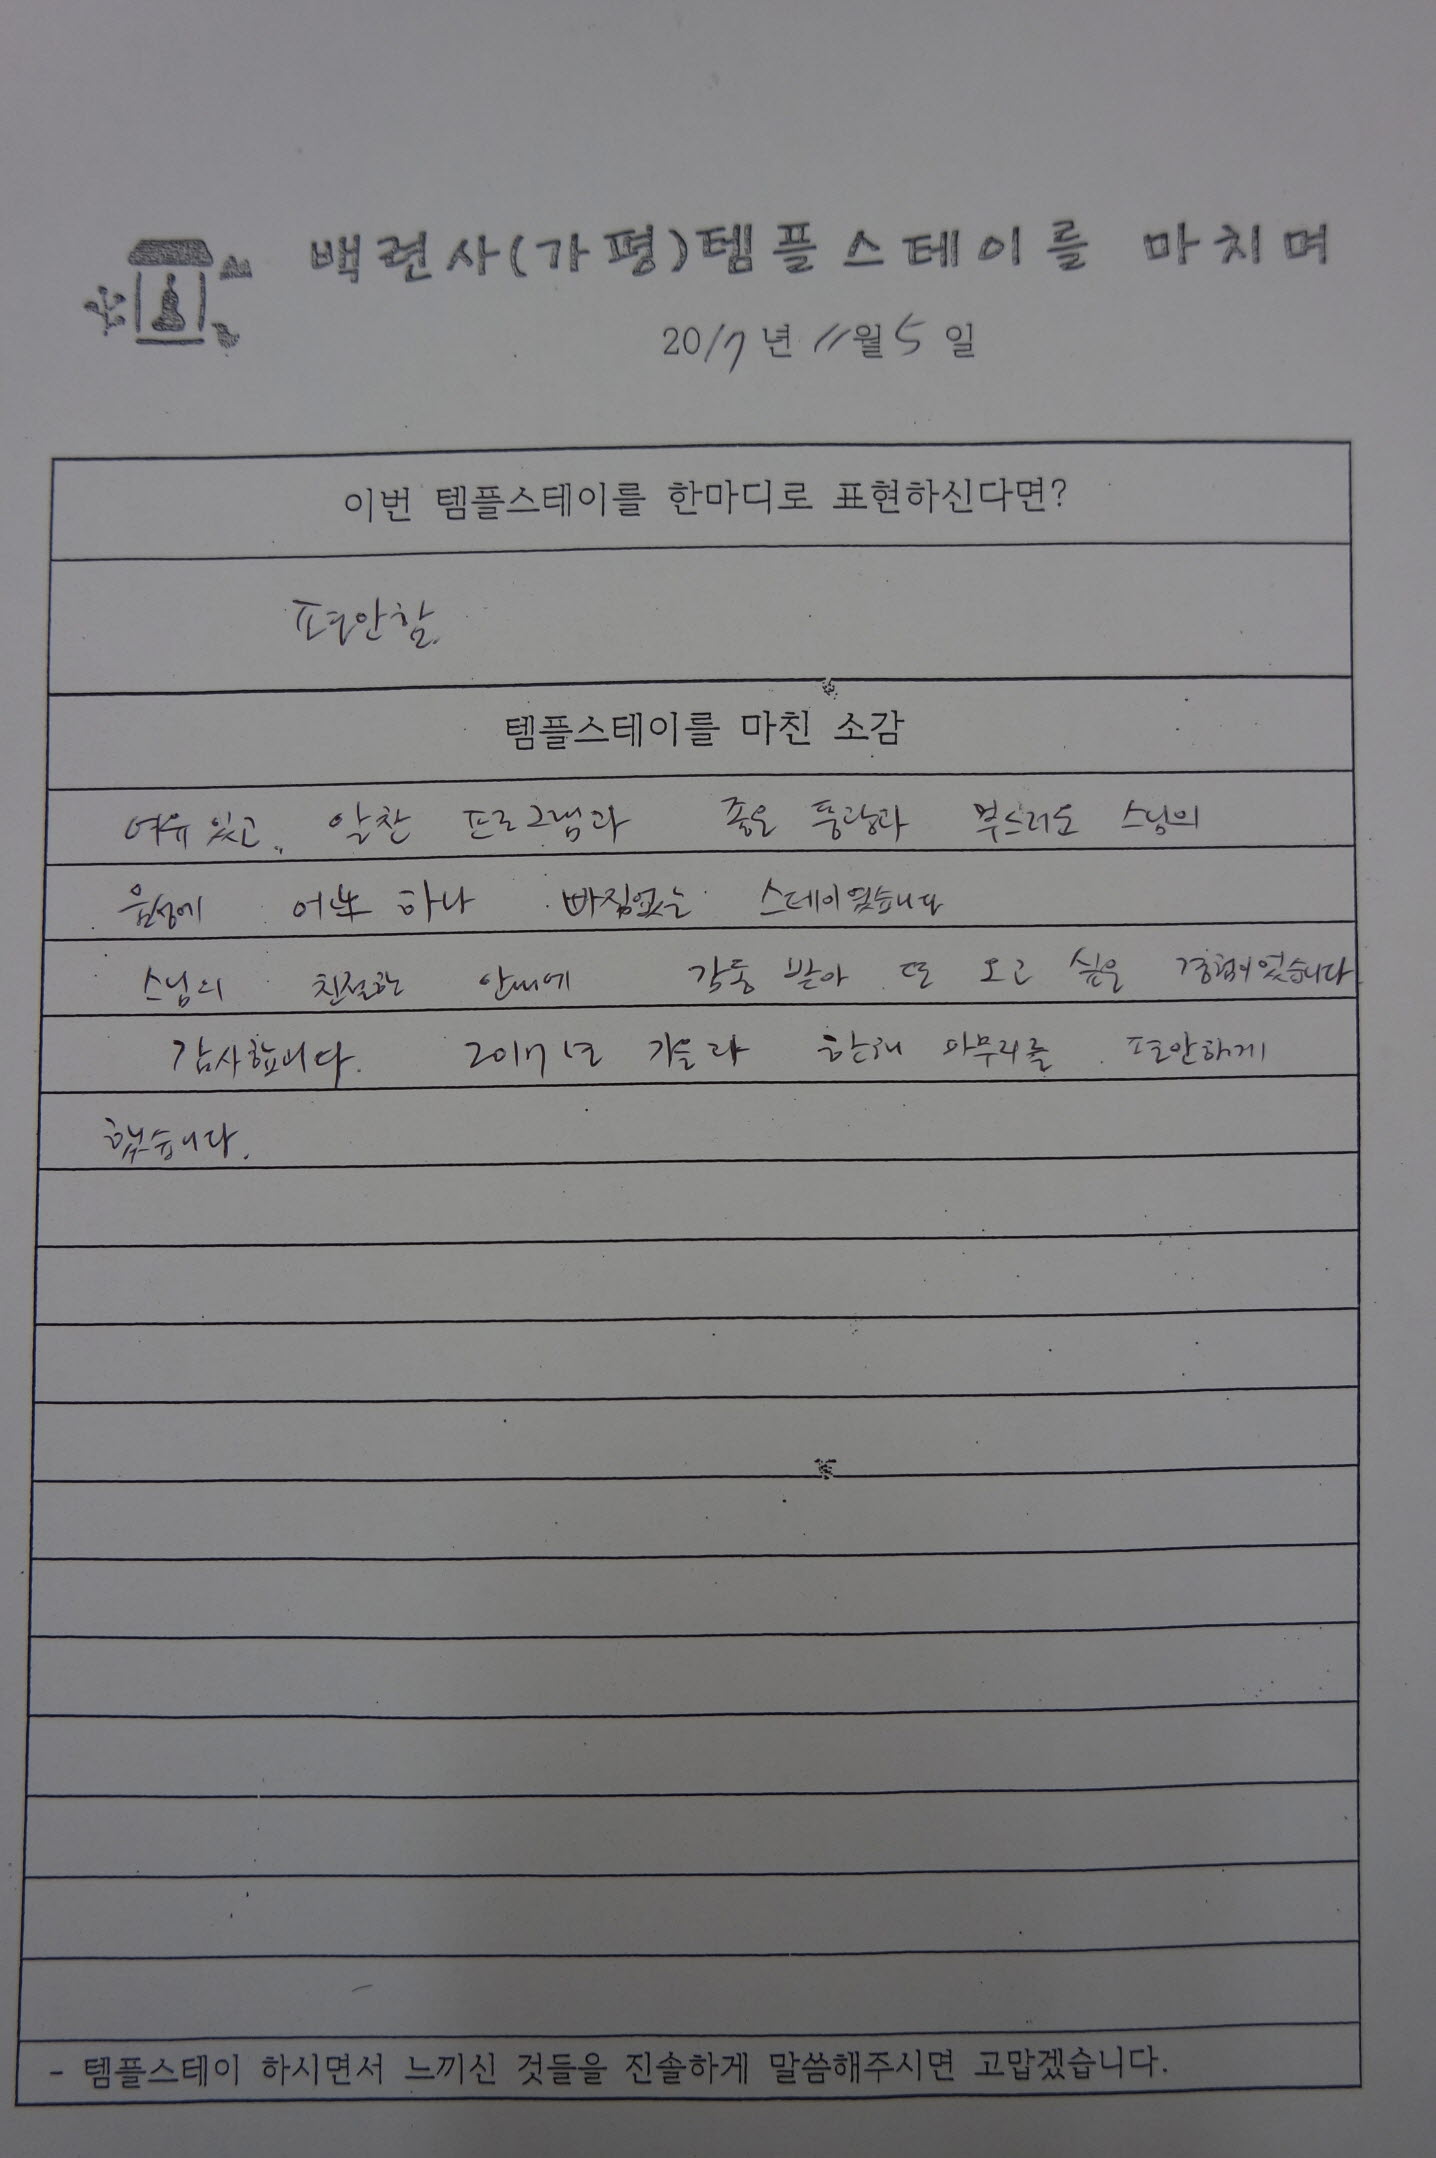 백련사(가평)템플스테이를 마치며
2017년 11월 5일
이번 템플스테이를 한마디로 표현하신다면?
편안함.
템플스테이를 마친 소감
여유 있고, 알찬 프로그램과 좋은 풍광과 부드러운 스님의
음성에 어느 하나 빠짐없는 스테이였습니다
스님의 친절한 안내에 감동 받아 또 오고 싶은 경험이었습니다
감사합니다. 2017년 가을과 한해 마무리를 편안하게
했습니다.
- 템플스테이 하시면서 느끼신 것들을 진솔하게 말씀해주시면 고맙겠습니다.